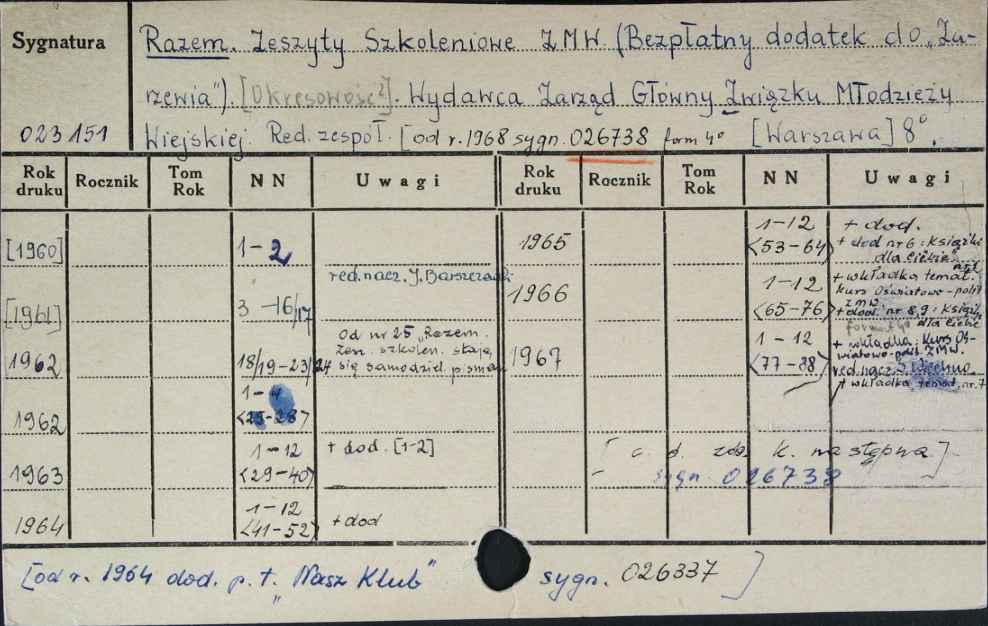 Sygnatura
Razem. Zeszyty Szkoleniowe ZMW (Bezpłatny dodatek do „Za-
rzewia"). [Okresowość?]. Wydawca Zarząd Główny Związku Młodzieży
023151 Wiejskiej. Red. zespół. [od r. 1968 sygn. 026738 form 4° [Warszawa] 8°.
Rok druku Rocznik Tom Rok NN Uwagi Rok druku Rocznik Tom Rok NN Uwagi
[1960] 1-2
red. nacz. J. Barszczewski
[1961] 3-16/17
1962 18/19-23/24 Od nr 25 „Razem.
Zesz. szkolen. stają
się samodziel. pismem
1962 1-4
<25-28>
1963 1-12 + dod. [1-2]
<29-40>
1964 1-12
<41-52> + dod
1965 1-12 + dod.
<53-64> + dod nr 6: Książki
dla Ciebie
1966 1-12 + wkładka temat.
kurs Oświatowo-polit
<65-76> ZMW
+ dod. nr 8,9: Książki
format 4° dla Ciebie
1967 1-12 + wkładka: Kurs Oś-
wiatowo-polit. ZMW.
<77-88> red. nacz.
+ wkładka temat. nr. 7
[c. d. zob. k. następna]
sygn. 026738
[od r. 1964 dod. p. t. „Nasz Klub" sygn. 026337]